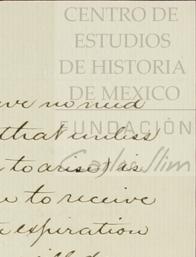 CENTRO DE
ESTUDIOS
DE HISTORIA
DE MEXICO
FUNDACIÓN
Carlos Slim
have no need
that unless
to arise) is
to receive
expiration